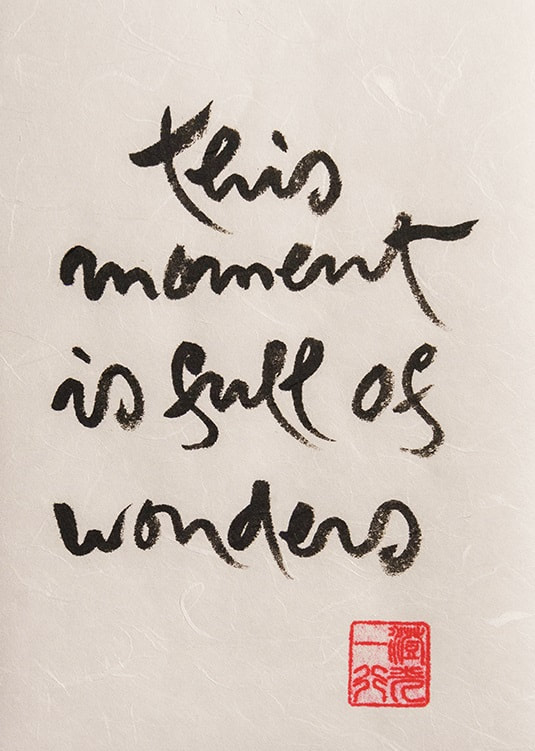 this
moment
is full of
wonders
澄光
一行